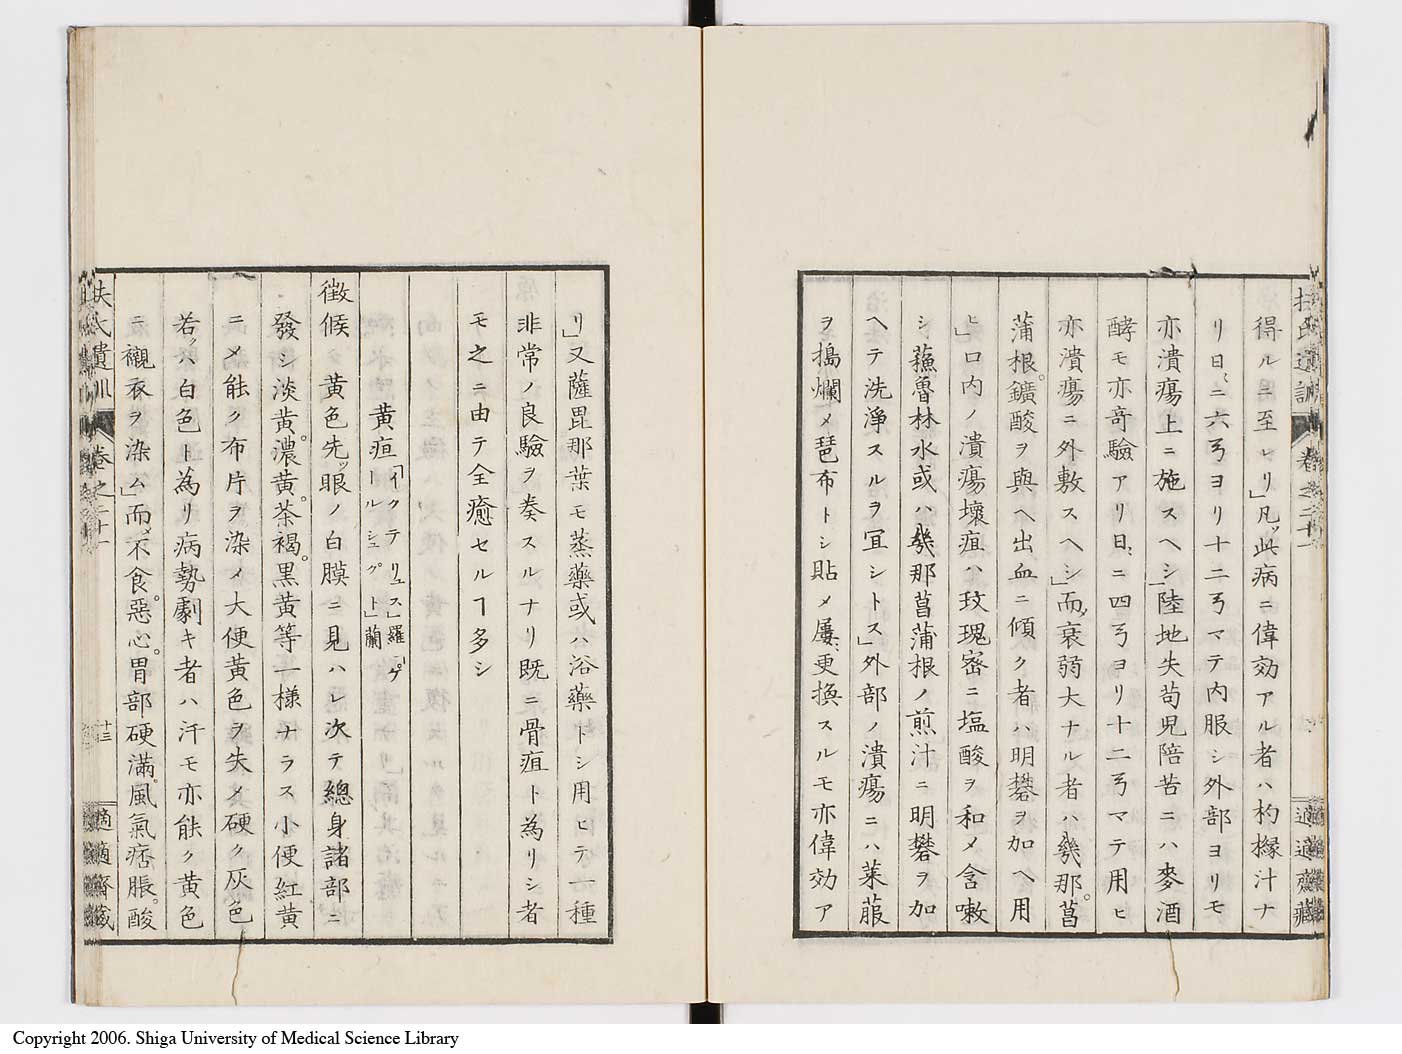 扶氏遺訓 卷之二十一
適適齋藏
得ルニ至ヒリ」凡ッ此病ニ偉効アル者ハ枸櫞汁ナ
リ日ニ二六弓ヨリ十二弓マテ内服シ外部ヨリモ
亦潰瘍上ニ施スヘシ」陸地失苟児陪苦ニハ麥酒
酵モ亦奇驗アリ日ニ四弓ヨリ十二弓マテ用ヒ
亦潰瘍ニ外敷スヘシ」而衰弱大ナル者ハ幾那。菖
蒲根。鑛酸ヲ與ヘ出血ニ傾ク者ハ明礬ヲ加ヘ用
ヒ」口内ノ潰瘍壞疽ハ玫瑰蜜ニ塩酸ヲ和メ含嗽
シ蘓魯林水或ハ幾那菖蒲根ノ煎汁ニ明礬ヲ加
ヘテ洗淨スルヲ冝シトス」外部ノ潰瘍ニハ莱菔
ヲ搗爛メ琶布トシ貼メ屢更換スルモ亦偉効ア
リ」又薩毘那葉モ蒸藥或ハ浴藥トシ用ヒテ一種
非常ノ良驗ヲ奏スルナリ既ニ骨疽ト為リシ者
モ之ニ由テ全癒セルヿ多シ
黄疸 「イクテリュス」羅「ゲールシュグト」蘭
徴候 黄色先ッ眼ノ白膜ニ見ハレ次テ總身諸部ニ
發シ淡黄。濃黄。茶褐。黒黄等一樣ナラス小便紅黄
ニメ能ク布片ヲ染メ大便黄色ヲ失メ硬ク灰色
若クハ白色ト為リ病勢劇キ者ハ汗モ亦能ク黄色
ニ襯衣ヲ染ム」而不食。惡心。胃部硬滿。風氣痞脹。酸
扶氏遺訓 卷之二十一
十三
適適齋藏
Copyright 2006. Shiga University of Medical Science Library